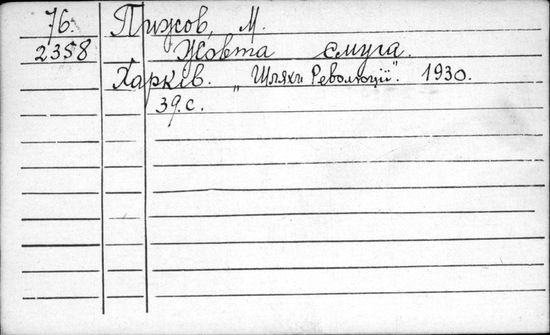 76. Пижов, М.
2358 Жовта смуга.
Харків. „Шляхи Революції". 1930.
39.с.